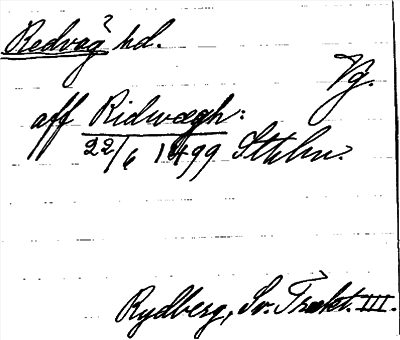 Redväg? hd.
Vg.
aff Ridwægh:
22/6 1499 Sthlm.
Rydberg, Sv. Trakt. III.